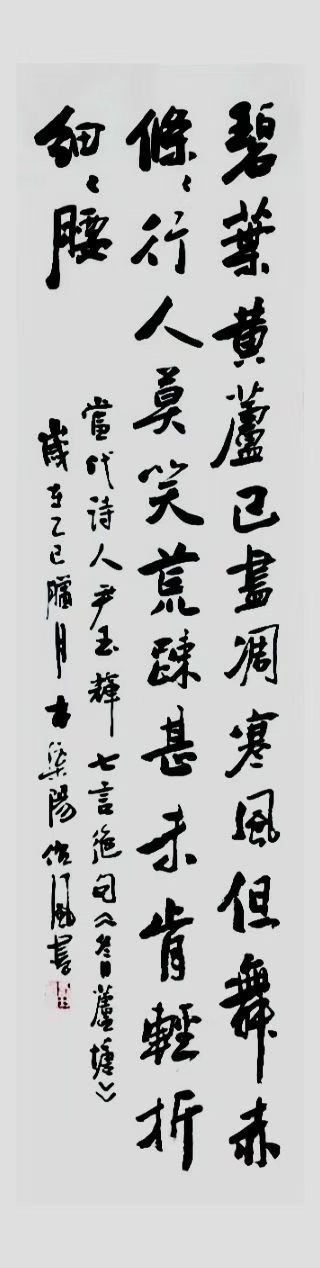 碧葉黄蘆已盡凋寒風但舞赤
條〻行人莫笑荒疎甚未肯輕折
細〻腰
當代詩人尹玉輝七言絶句《冬日蘆塘》
歲在乙巳臘月古棠陽 風書